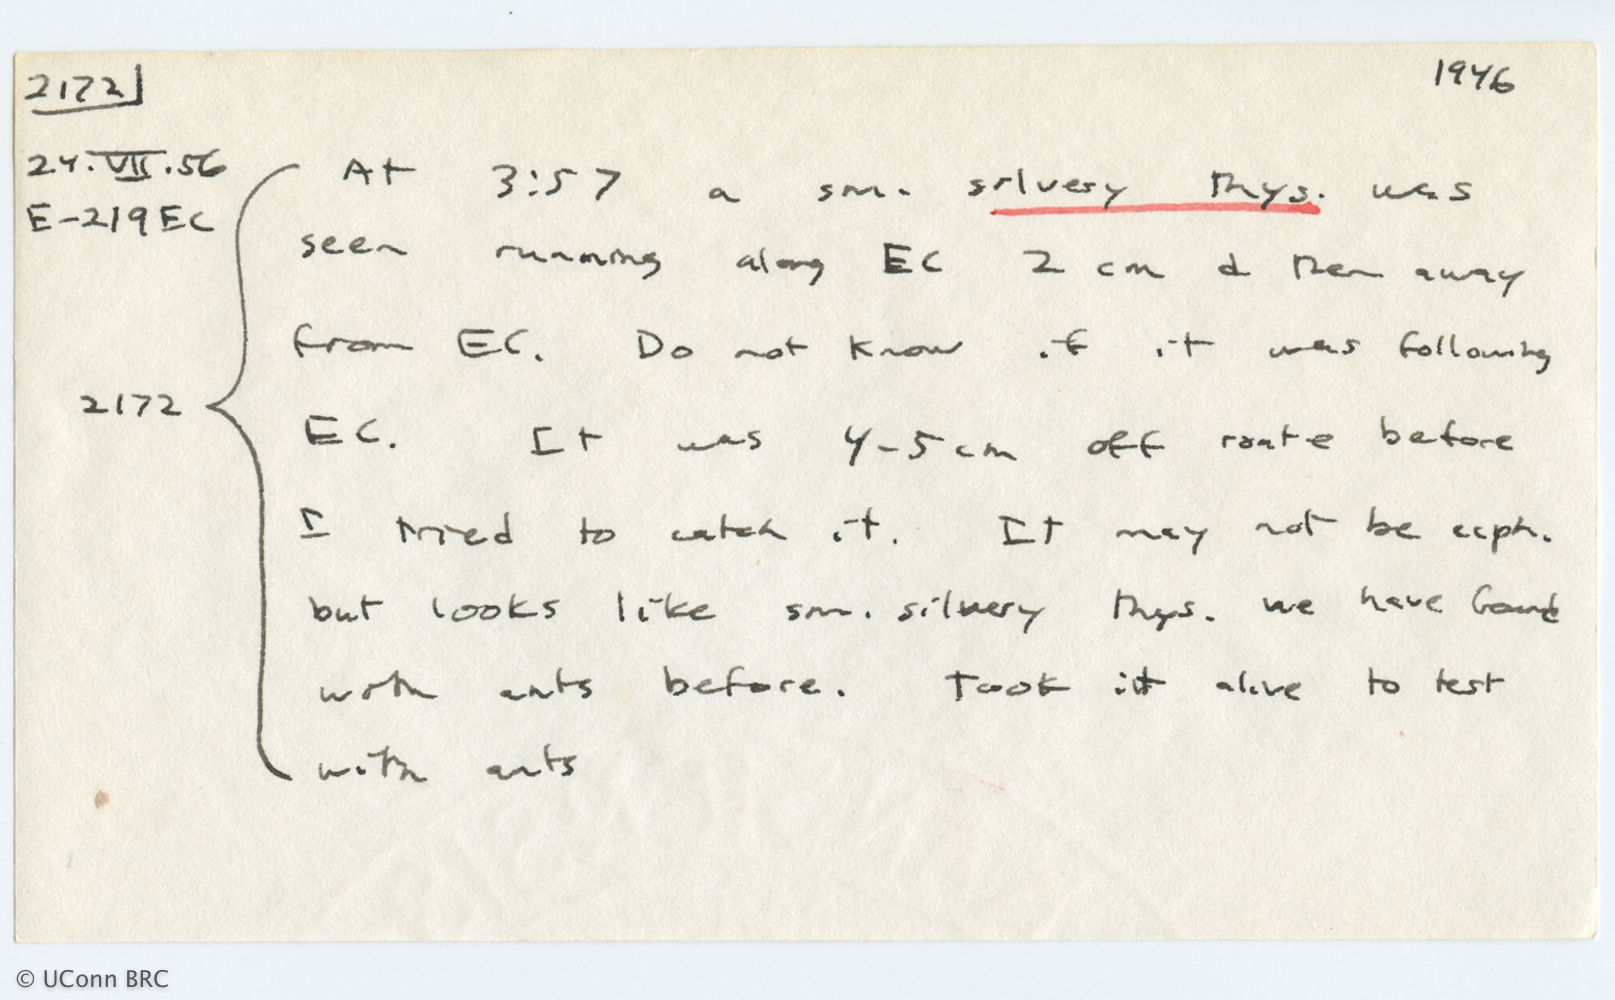 2172
1946
24.VII.56
E-219EC
At 3:57 a sm. silvery thys. was
seen running along EC 2 cm & then away
from EC. Do not know if it was following
2172
EC. It was 4-5 cm off route before
I tried to catch it. It may not be ecph.
but looks like sm. silvery thys. we have found
with ants before. Took it alive to test
with ants
© UConn BRC